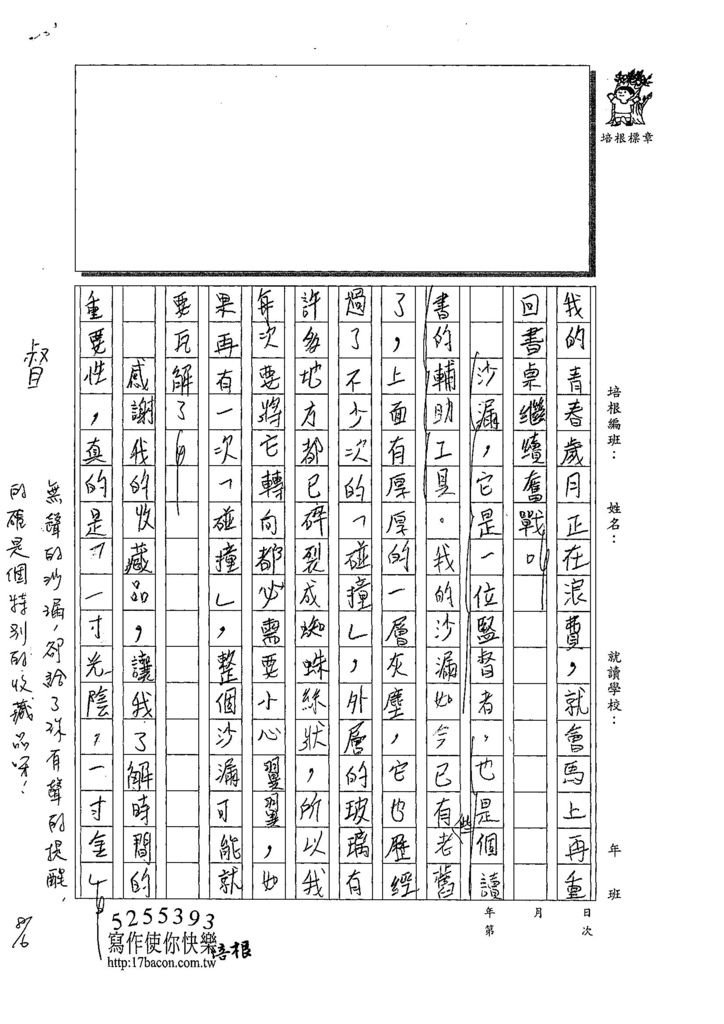 培根標章
培根編班：　姓名：　就讀學校：　年　班
我的青春歲月正在浪費，就會馬上再重
回書桌繼續奮戰。
沙漏，它是一位監督者，也是個讀
書的輔助工具。我的沙漏如今已有些老舊
了，上面有厚厚的一層灰塵，它也歷經
過了不少次的「碰撞」，外層的玻璃有
許多地方都已碎裂成蜘蛛絲狀，所以我
每次要將它轉向都必需要小心翼翼，如
果再有一次「碰撞」，整個沙漏可能就
要瓦解了。
感謝我的收藏品，讓我了解時間的
重要性，真的是「一寸光陰，一寸金」。
年　月　日
第　次
5255393
寫作使你快樂 培根
http:17bacon.com.tw
無聲的沙漏，卻給了你有聲的提醒，
的確是個特別的收藏品呀！
8/6